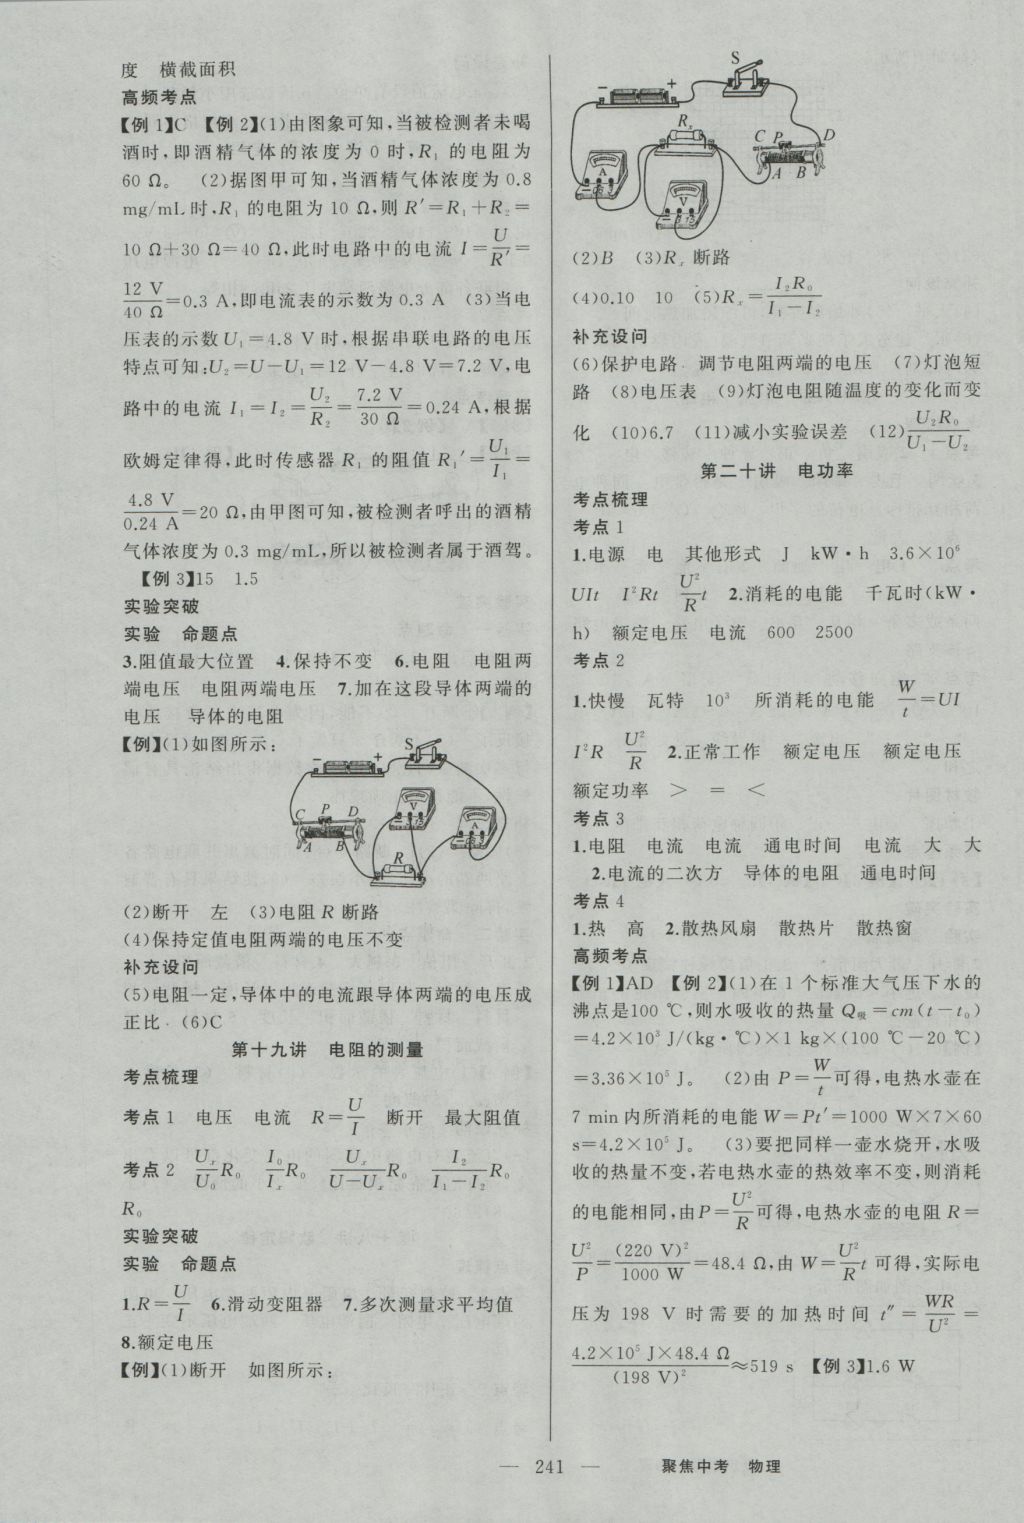 度　横截面积
高频考点
【例1】C　【例2】(1)由图象可知,当被检测者未喝
酒时,即酒精气体的浓度为 0 时,R₁ 的电阻为
60 Ω。　(2)据图甲可知,当酒精气体浓度为 0.8
mg/mL 时,R₁ 的电阻为 10 Ω,则 R′=R₁+R₂=
10 Ω+30 Ω=40 Ω,此时电路中的电流 I=U/R′=
12 V/40 Ω=0.3 A,即电流表的示数为 0.3 A　(3)当电
压表的示数 U₁=4.8 V 时,根据串联电路的电压
特点可知:U₂=U−U₁=12 V−4.8 V=7.2 V,电
路中的电流 I₁=I₂=U₂/R₂=7.2 V/30 Ω=0.24 A,根据
欧姆定律得,此时传感器 R₁ 的阻值 R₁′=U₁/I₁=
4.8 V/0.24 A=20 Ω,由甲图可知,被检测者呼出的酒精
气体浓度为 0.3 mg/mL,所以被检测者属于酒驾。
【例3】15　1.5
实验突破
实验　命题点
3.阻值最大位置　4.保持不变　6.电阻　电阻两
端电压　电阻两端电压　7.加在这段导体两端的
电压　导体的电阻
【例】(1)如图所示:
− + S
C P D V A
A B R
(2)断开　左　(3)电阻 R 断路
(4)保持定值电阻两端的电压不变
补充设问
(5)电阻一定,导体中的电流跟导体两端的电压成
正比　(6)C
第十九讲　电阻的测量
考点梳理
考点 1　电压　电流　R=U/I　断开　最大阻值
考点 2　Uₓ/U₀R₀　I₀/IₓR₀　Uₓ/(U−Uₓ)R₀　I₂/(I₁−I₂)R₀
R₀
实验突破
实验　命题点
1.R=U/I　6.滑动变阻器　7.多次测量求平均值
8.额定电压
【例】(1)断开　如图所示:
S
− +
Rₓ C P D
A V A B
(2)B　(3)Rₓ 断路
(4)0.10　10　(5)Rₓ=I₂R₀/(I₁−I₂)
补充设问
(6)保护电路　调节电阻两端的电压　(7)灯泡短
路　(8)电压表　(9)灯泡电阻随温度的变化而变
化　(10)6.7　(11)减小实验误差　(12)U₂R₀/(U₁−U₂)
第二十讲　电功率
考点梳理
考点 1
1.电源　电　其他形式　J　kW·h　3.6×10⁶
UIt　I²Rt　U²/R t　2.消耗的电能　千瓦时(kW·
h)　额定电压　电流　600　2500
考点 2
1.快慢　瓦特　10³　所消耗的电能　W/t=UI
I²R　U²/R　2.正常工作　额定电压　额定电压
额定功率　>　=　<
考点 3
1.电阻　电流　电流　通电时间　电流　大　大
2.电流的二次方　导体的电阻　通电时间
考点 4
1.热　高　2.散热风扇　散热片　散热窗
高频考点
【例1】AD　【例2】(1)在 1 个标准大气压下水的
沸点是100 ℃,则水吸收的热量 Q吸=cm(t−t₀)
=4.2×10³ J/(kg·℃)×1 kg×(100 ℃−20 ℃)
=3.36×10⁵ J。　(2)由 P=W/t可得,电热水壶在
7 min内所消耗的电能 W=Pt′=1000 W×7×60
s=4.2×10⁵ J。　(3)要把同样一壶水烧开,水吸
收的热量不变,若电热水壶的热效率不变,则消耗
的电能相同,由P=U²/R可得,电热水壶的电阻 R=
U²/P=(220 V)²/1000 W=48.4 Ω,由 W=U²/R t 可得,实际电
压为 198 V 时需要的加热时间 t″=WR/U²=
4.2×10⁵ J×48.4 Ω/(198 V)²≈519 s　【例3】1.6 W
— 241 —　聚焦中考　物理